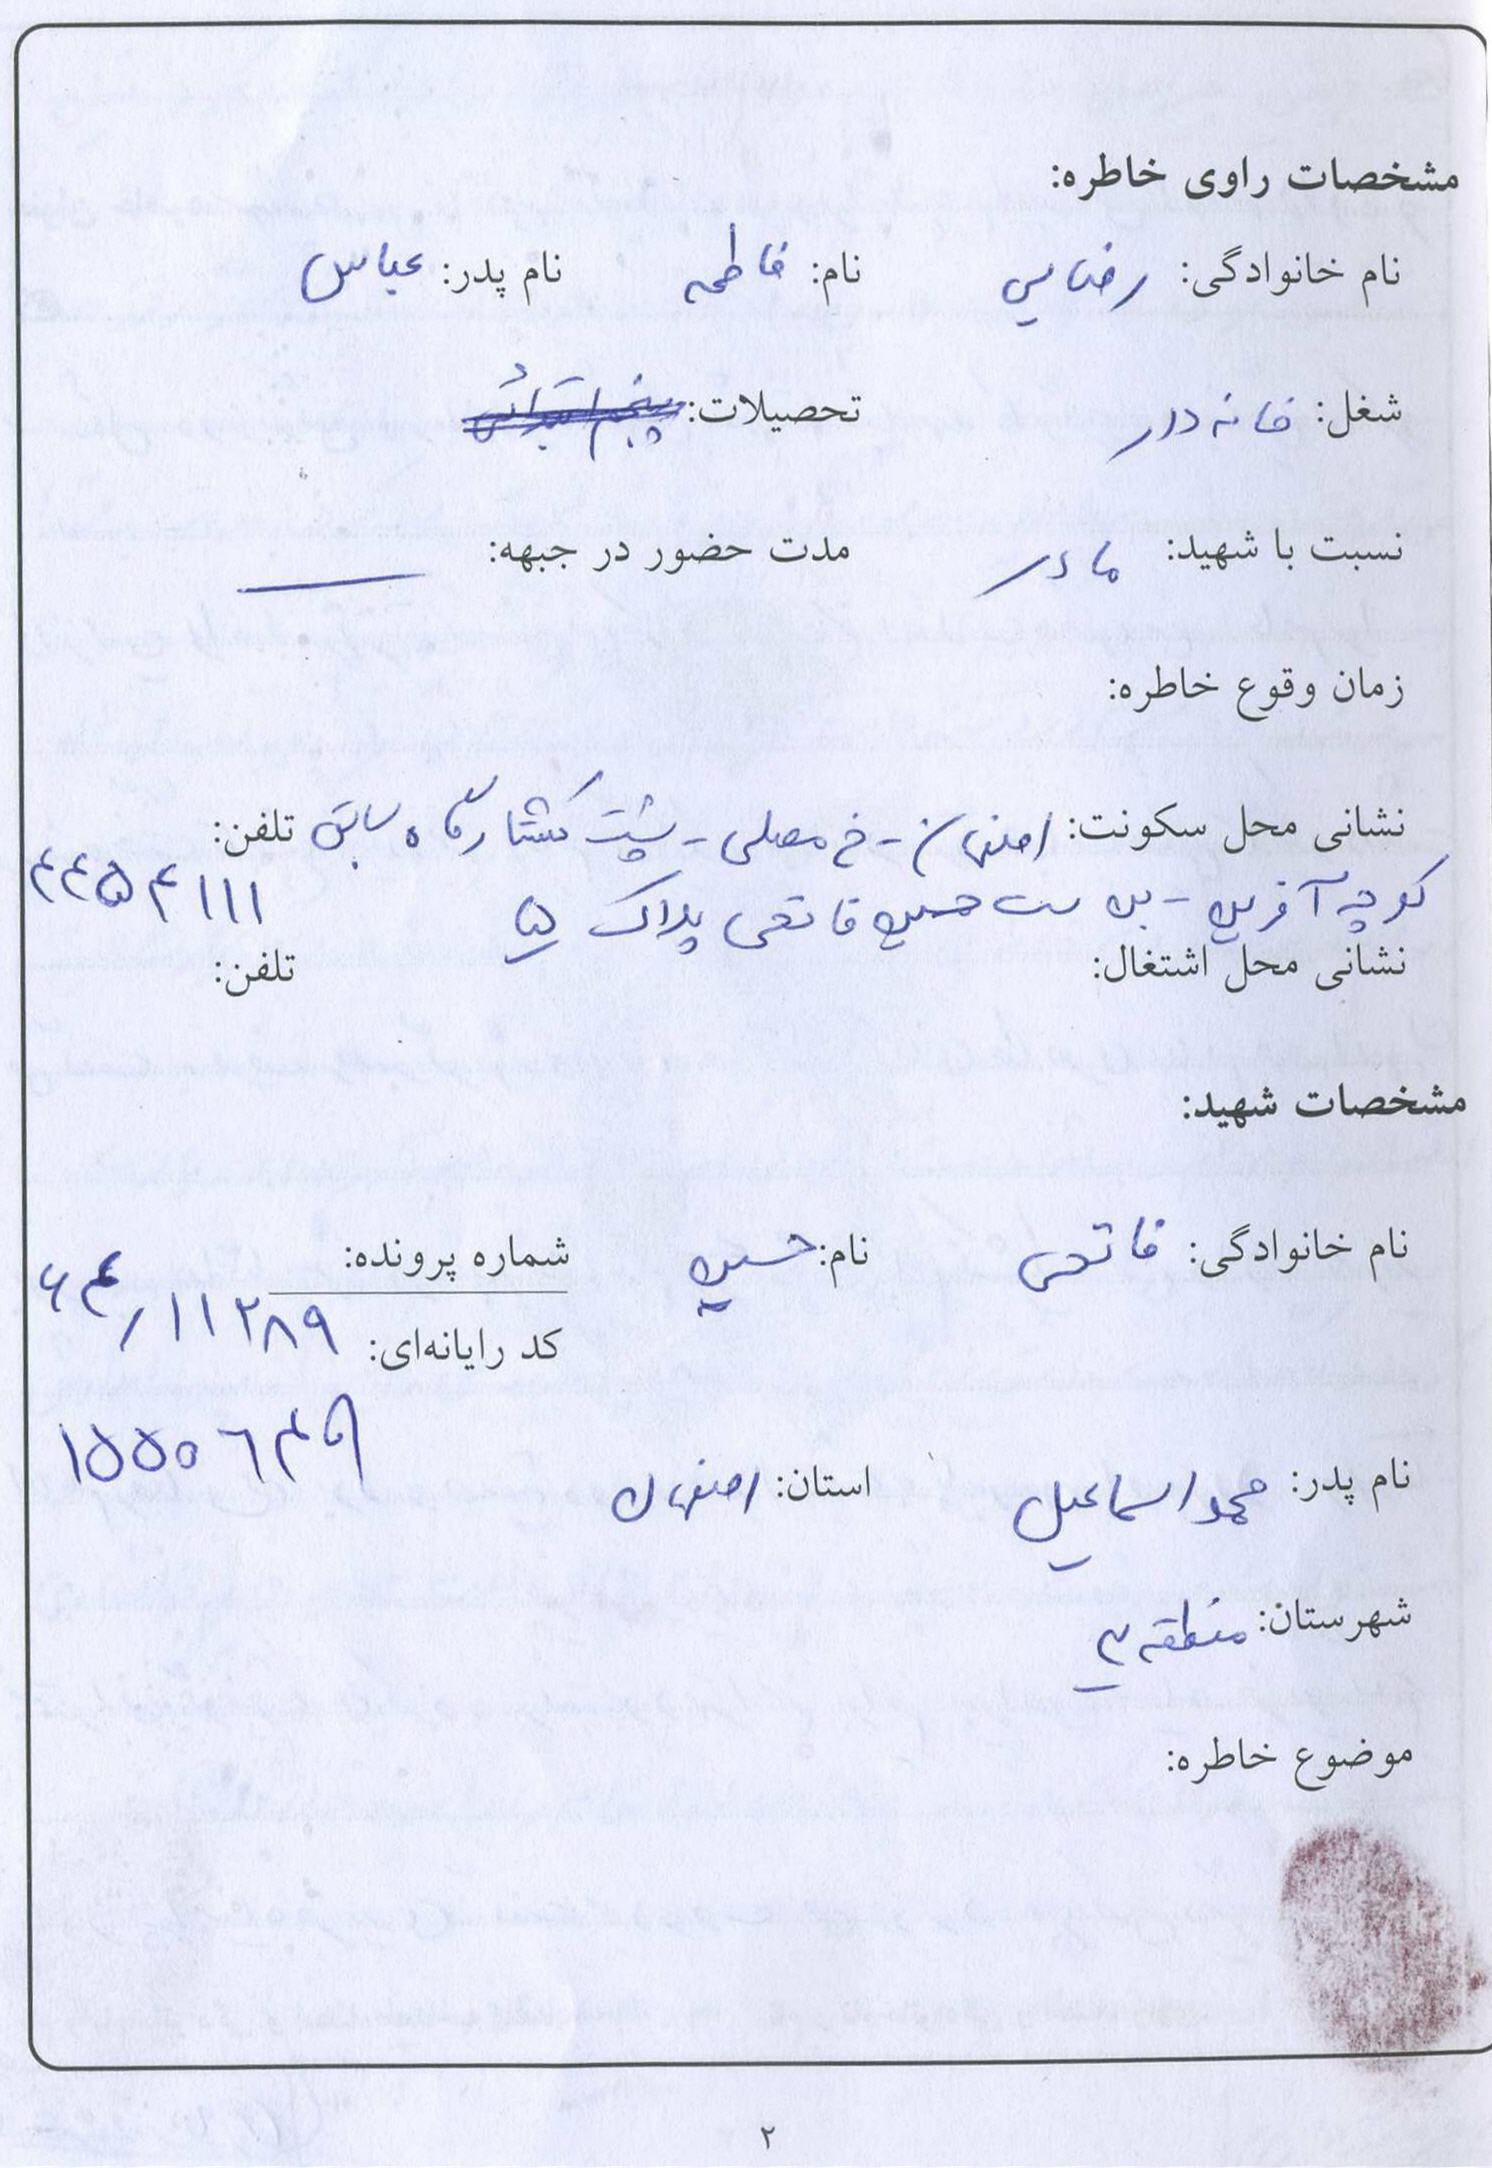 مشخصات راوی خاطره:
نام خانوادگی: رضایی نام: فاطمه نام پدر: عباس
شغل: خانه دار تحصیلات: پنجم ابتدائی
نسبت با شهید: مادر مدت حضور در جبهه: ــــ
زمان وقوع خاطره:
نشانی محل سکونت: اصفهان - خ مصلی - پشت کشتارگاه سابق تلفن:
کوچه آفرین - بن بست حسین فاتحی پلاک ۵ ۴۴۵۴۱۱۱
نشانی محل اشتغال: تلفن:
مشخصات شهید:
نام خانوادگی: فاتحی نام: حسین شماره پرونده:
کد رایانه‌ای: ۶۴/۱۱۲۸۹
۱۵۵۰۶۴۹
نام پدر: محمد اسماعیل استان: اصفهان
شهرستان: منطقه ۳
موضوع خاطره:
۲